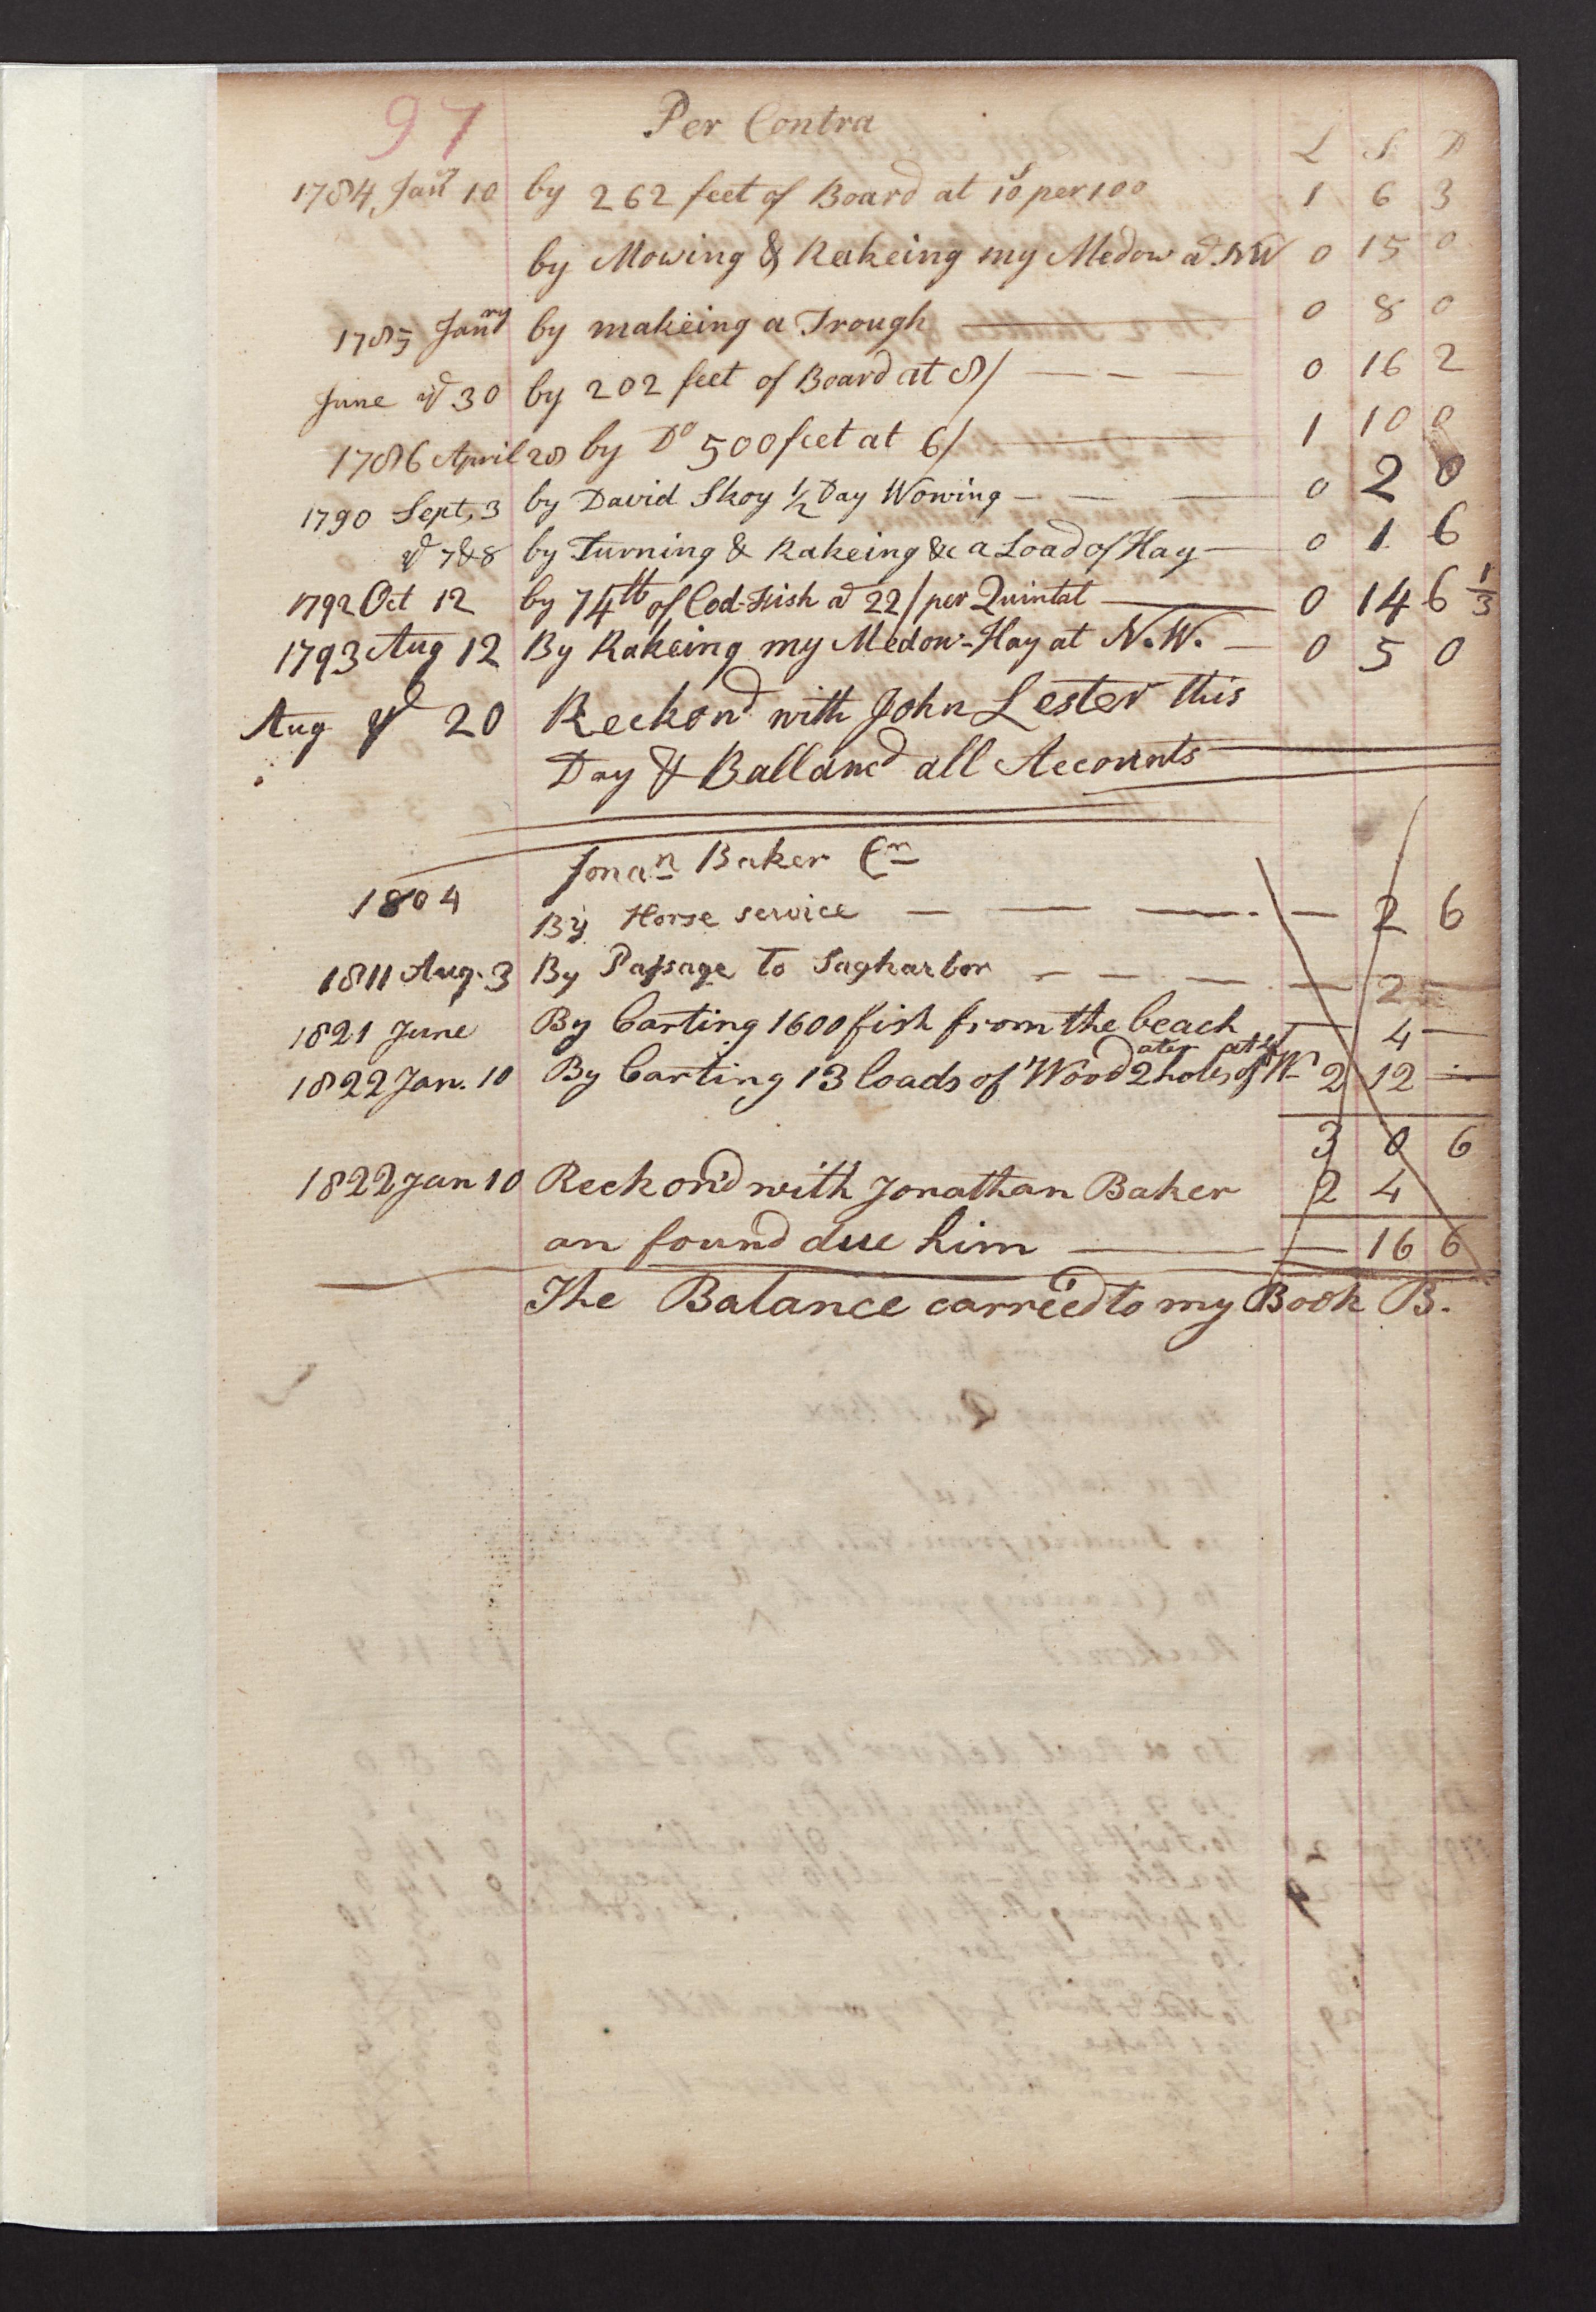 97
Per Contra
L S D
1784 Jany 10 by 262 feet of Board at 10s per 100 1 6 3
by Mowing & Rakeing my Medow at NW 0 15 0
1785 Janry by makeing a Trough 0 8 0
June ye 30 by 202 feet of Board at 8/ 0 16 2
1786 April 28 by Do 500 feet at 6/ 1 10 0
1790 Sept, 3 by David Skoy 1/2 Day Mowing 0 2 0
ye 7&8 by Turning & Rakeing &c a Load of Hay 0 1 6
1792 Oct 12 by 74lb of Cod-Fish at 22/ per Quintal 0 14 6 1/3
1793 Aug 12 By Rakeing my Medow-Hay at N.W. 0 5 0
Aug ye 20 Reckond with John Lester this
Day & Ballancd all Accounts
Jonan Baker Cr
1804 By Horse service 2 6
1811 Aug. 3 By Passage to Sagharbor 2
1821 June By Carting 1600 fish from the beach 4
1822 Jan. 10 By Carting 13 loads of Wood 2 holes of Water at 4/ 2 12
3 0 6
1822 Jan 10 Reckon'd with Jonathan Baker 2 4
an found due him 16 6
The Balance carried to my Book B.